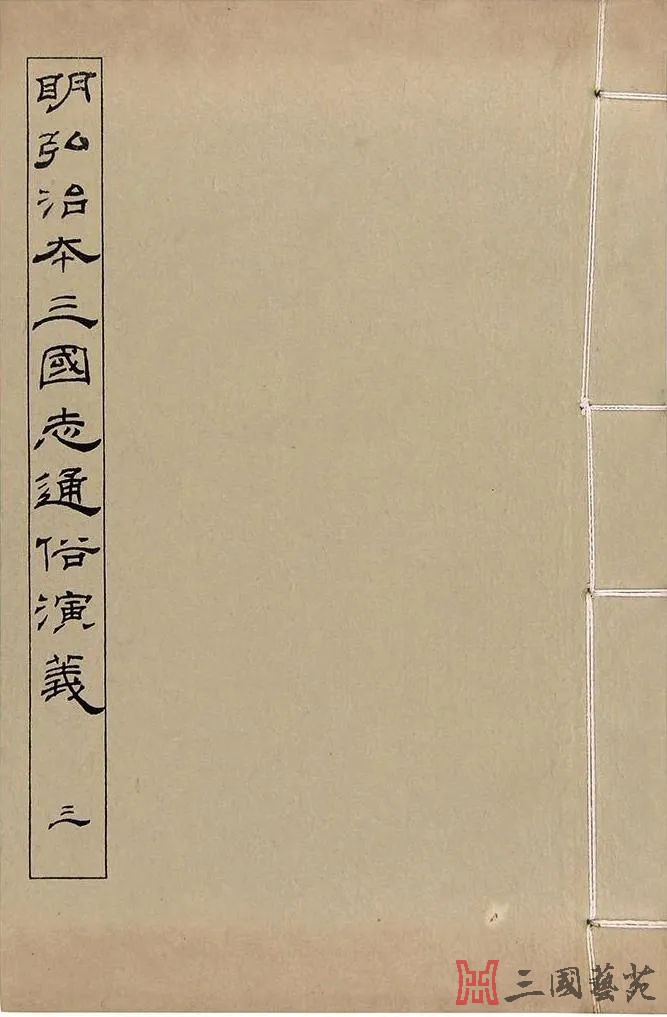 明弘治本三國志通俗演義
三
三國藝苑